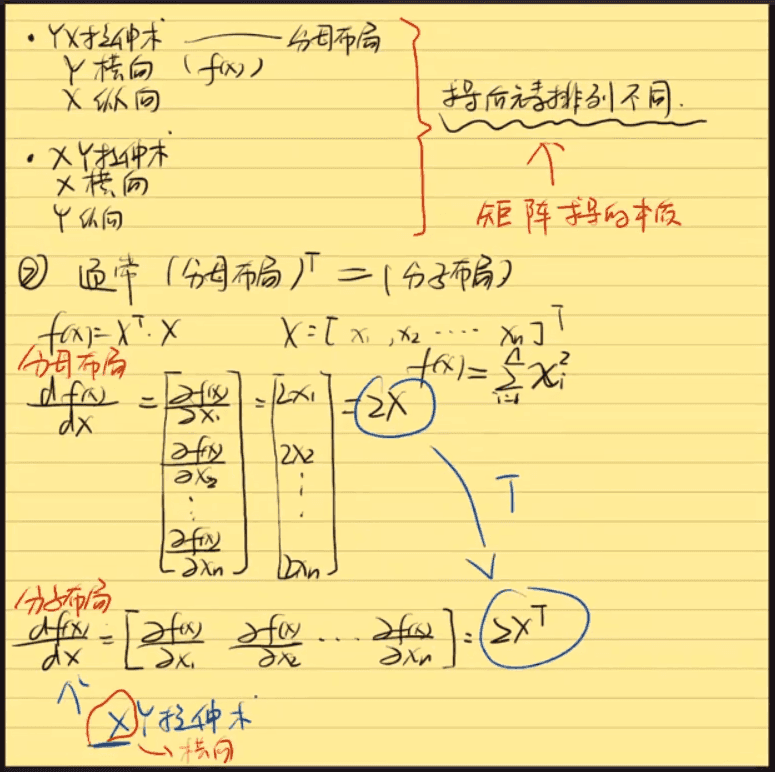 · YX拉伸术 —— 分母布局
Y 横向 (f(x))
X 纵向
求导后元素排列不同.
· XY拉伸术
X 横向
Y 纵向
矩阵求导的本质
② 通常 (分母布局)ᵀ = (分子布局)
f(x)=Xᵀ·X X=[x₁,x₂ ···· xₙ]ᵀ
分母布局 f(x)=∑ᵢ₌₁ⁿ xᵢ²
df(x)/dX = [∂f(x)/∂x₁ ∂f(x)/∂x₂ ⋮ ∂f(x)/∂xₙ] = [2x₁ 2x₂ ⋮ 2xₙ] = 2X
T
分子布局
df(x)/dX = [∂f(x)/∂x₁ ∂f(x)/∂x₂ ··· ∂f(x)/∂xₙ] = 2Xᵀ
XY拉伸术
横向